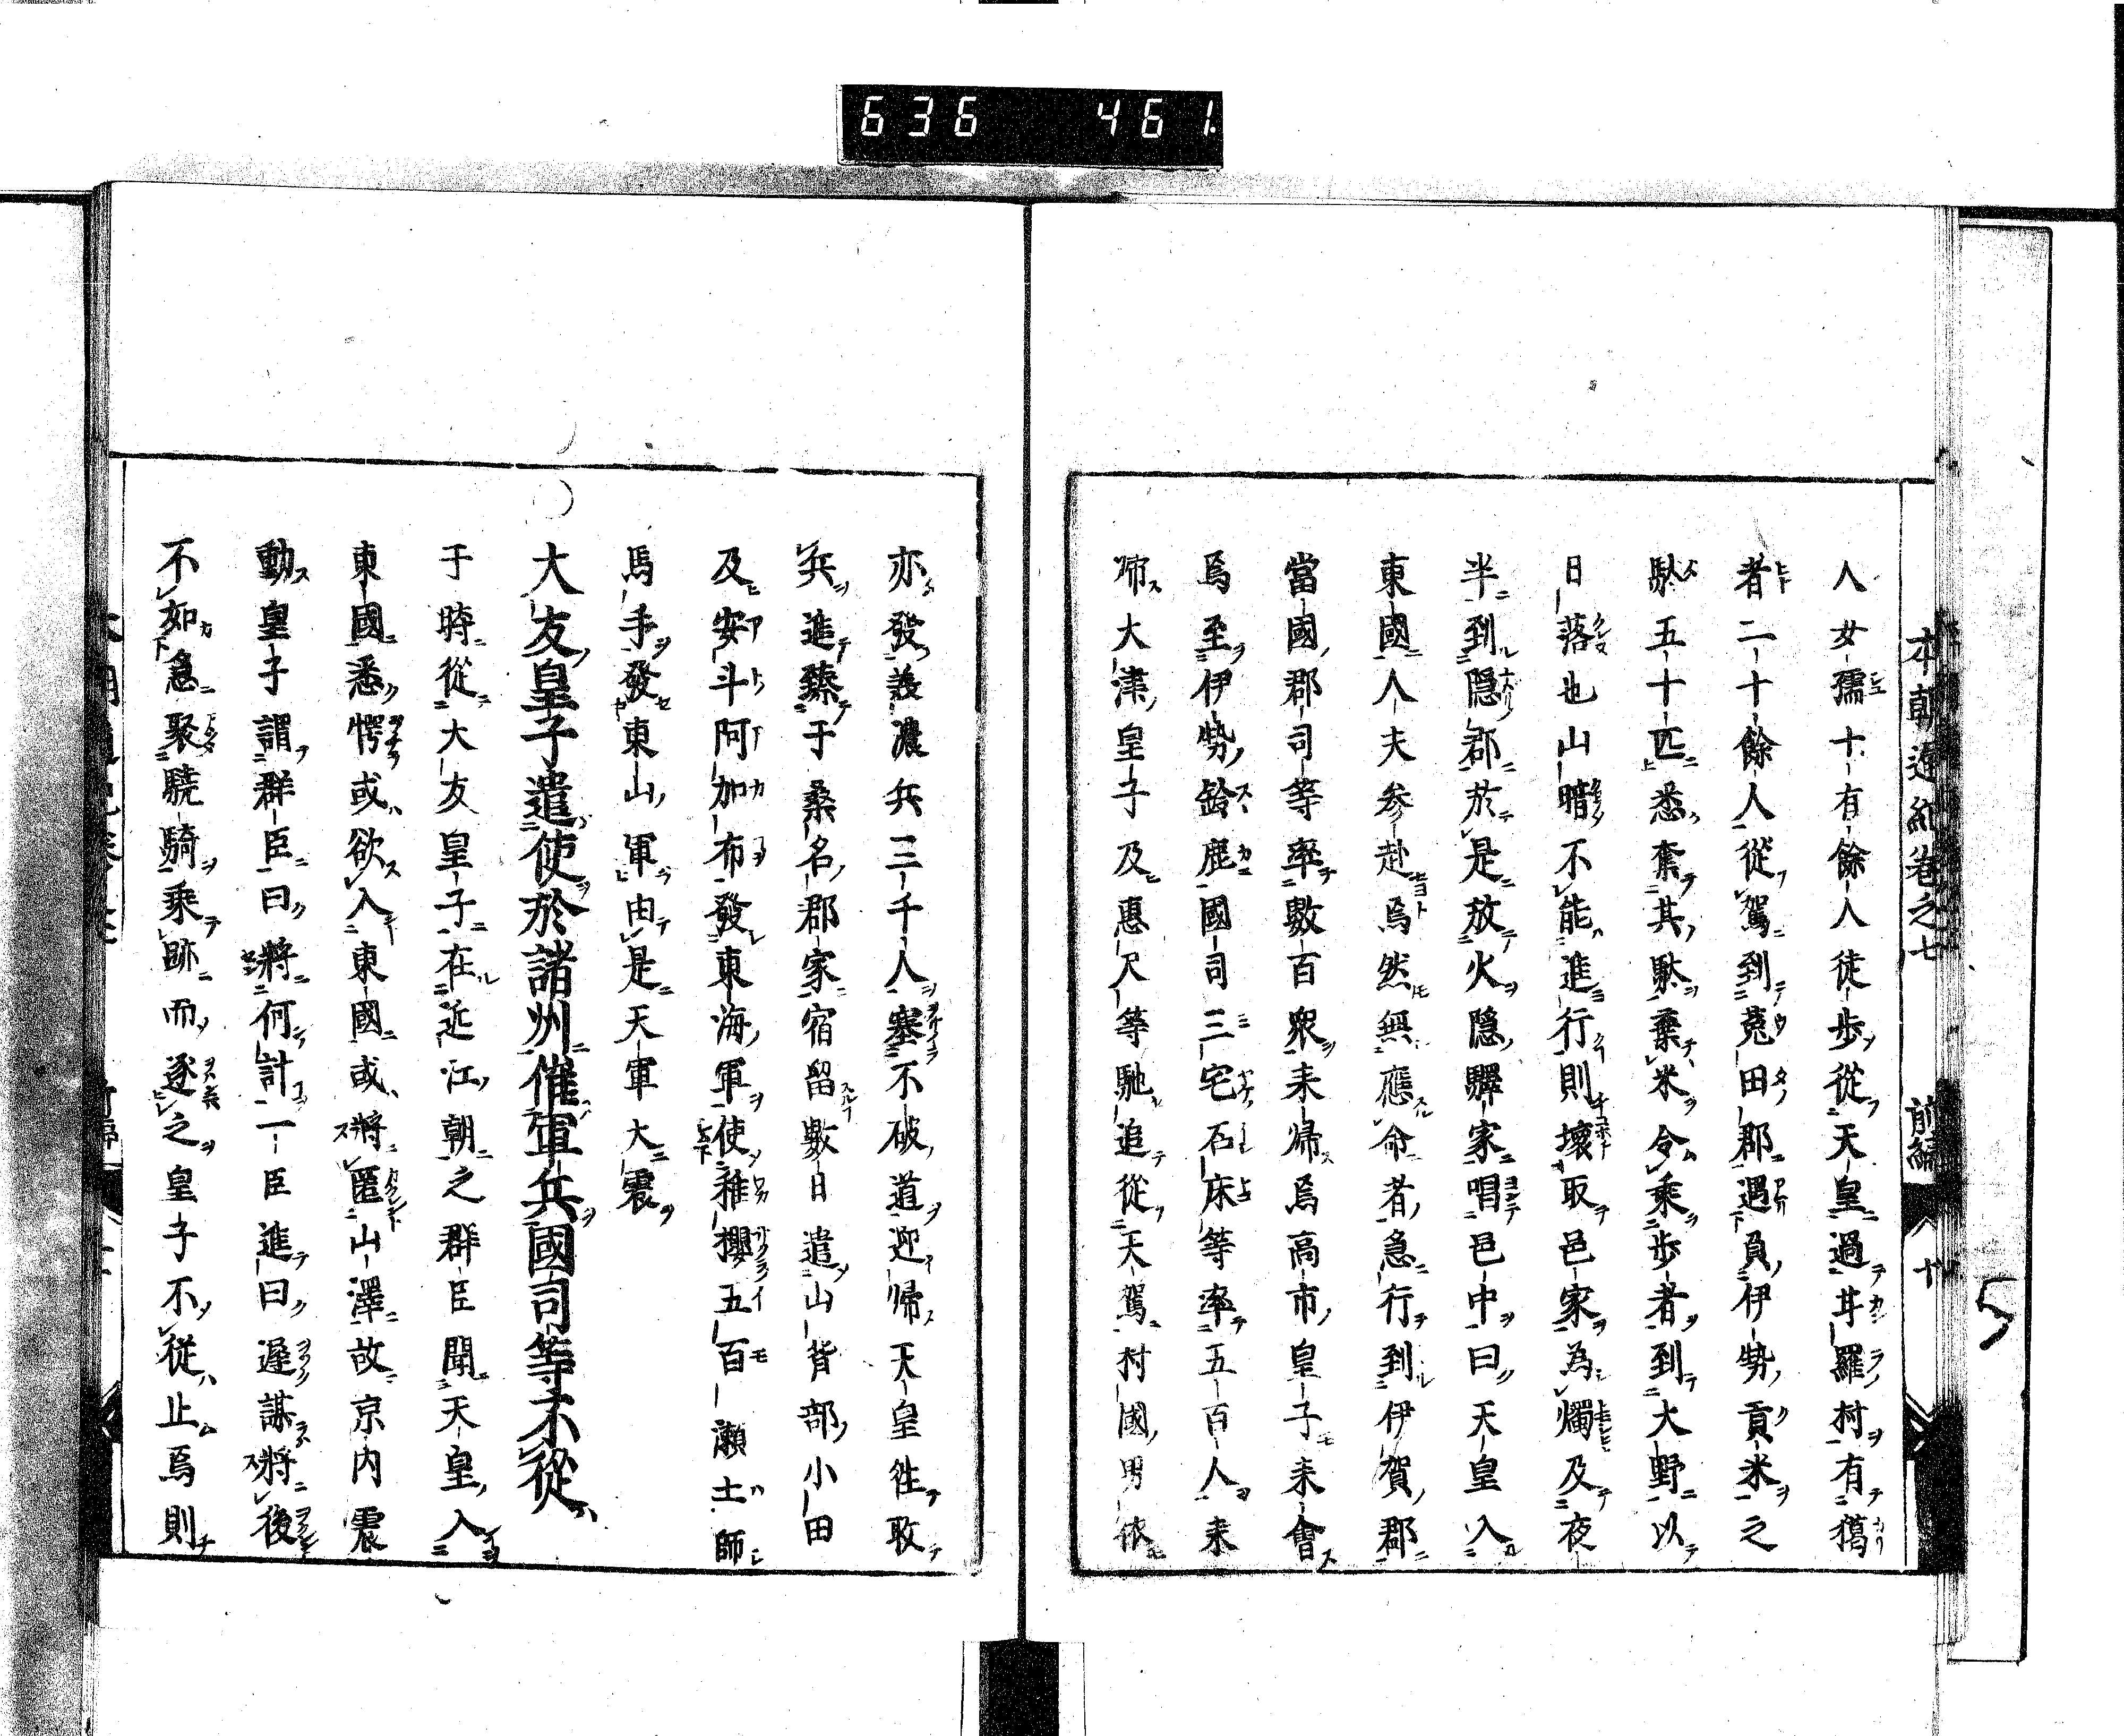 636 461.
本朝通紀卷之七 前編 十
人女孺十有餘人徒歩從天皇過甘羅村有獦
者二十餘人從駕到菟田郡遇負伊勢貢米之
駄五十匹悉奪其駄棄米令乘歩者到大野以
日落也山暗不能進行則壞取邑家為燭及夜
半到隠郡於是放火隠驛家唱邑中曰天皇入
東國人夫参赴焉然無應命者急行到伊賀郡
當國郡司等率數百衆来帰焉高市皇子来會
焉至伊勢鈴鹿國司三宅石床等率五百人来
帰大津皇子及惠尺等馳追從天駕村國男依
亦發美濃兵三千人塞不破道迎帰天皇徃收
兵進臻于桑名郡家宿留數日遣山背部小田
及安斗阿加布發東海軍使稚櫻五百瀬土師
馬手發東山軍由是天軍大震
大友皇子遣使於諸州催軍兵國司等不從
于時從大友皇子在近江朝之群臣聞天皇入
東國悉愕或欲入東國或將匿山澤故京内震
動皇子謂群臣曰將何計一臣進曰遲謀將後
不如急聚驍騎乘跡而逐之皇子不從止焉則
5